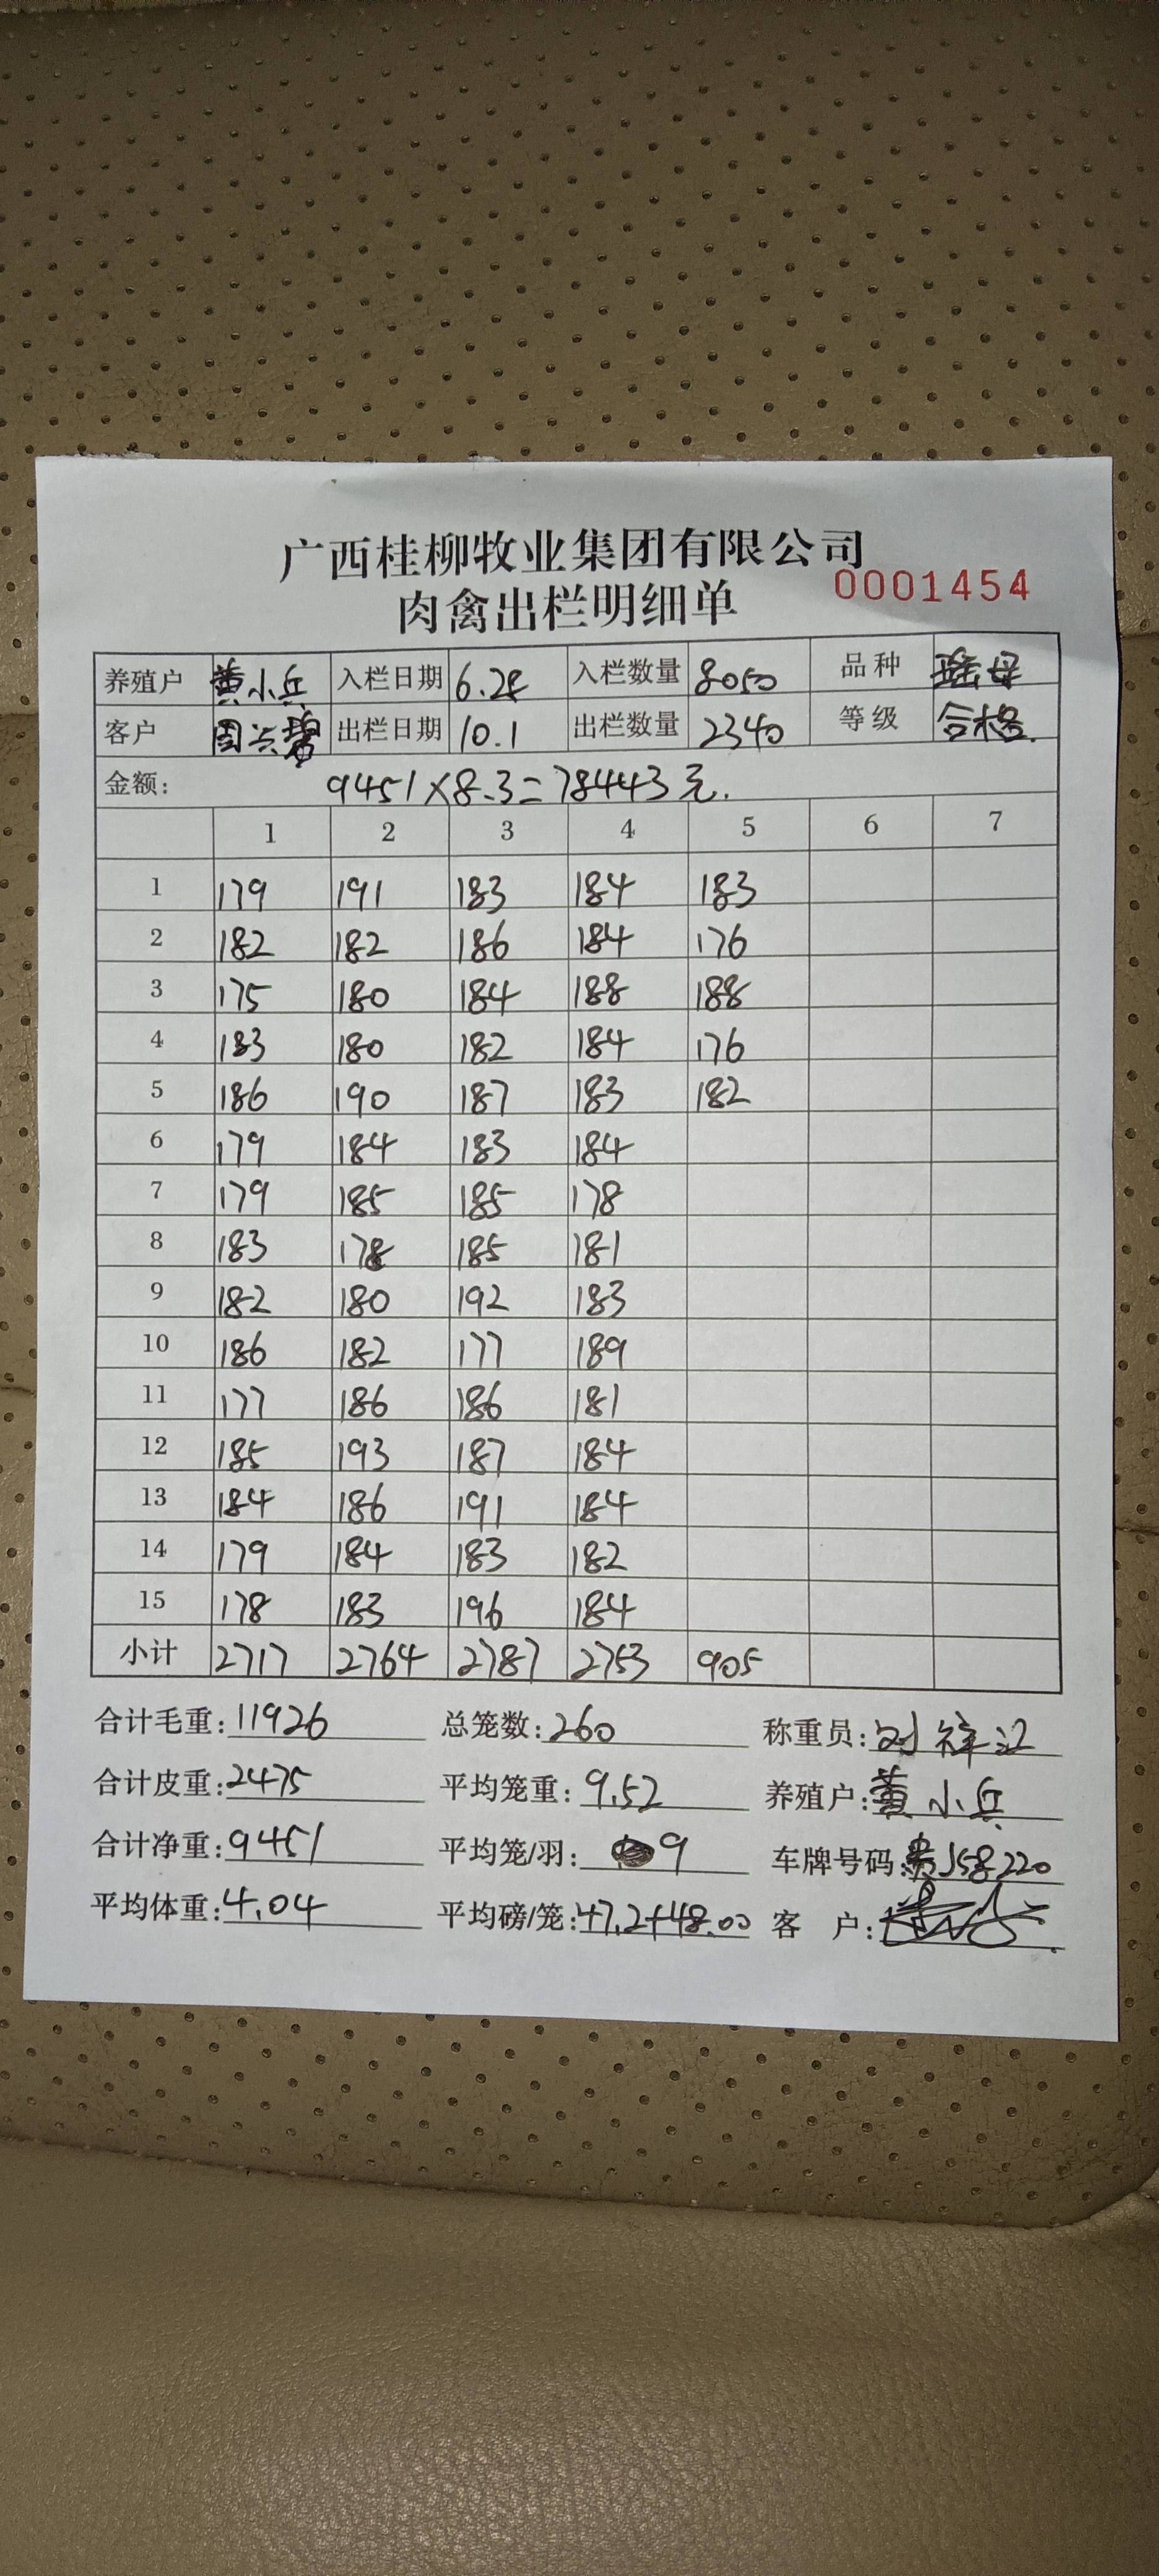 广西桂柳牧业集团有限公司
肉禽出栏明细单 0001454
养殖户 黄小兵 入栏日期 6.28 入栏数量 8050 品种 瑶母
客户 周兴碧 出栏日期 10.1 出栏数量 2340 等级 合格.
金额: 9451×8.3=78443元.
1 2 3 4 5 6 7
1 179 191 183 184 183
2 182 182 186 184 176
3 175 180 184 188 188
4 183 180 182 184 176
5 186 190 187 183 182
6 179 184 183 184
7 179 185 185 178
8 183 178 185 181
9 182 180 192 183
10 186 182 177 189
11 177 186 186 181
12 185 193 187 184
13 184 186 191 184
14 179 184 183 182
15 178 183 196 184
小计 2717 2764 2787 2753 905
合计毛重: 11926 总笼数: 260 称重员: 刘祥江
合计皮重: 2475 平均笼重: 9.52 养殖户: 黄小兵
合计净重: 9451 平均笼/羽: 9 车牌号码: 贵J58220
平均体重: 4.04 平均磅/笼: 47.2+48.00 客 户: